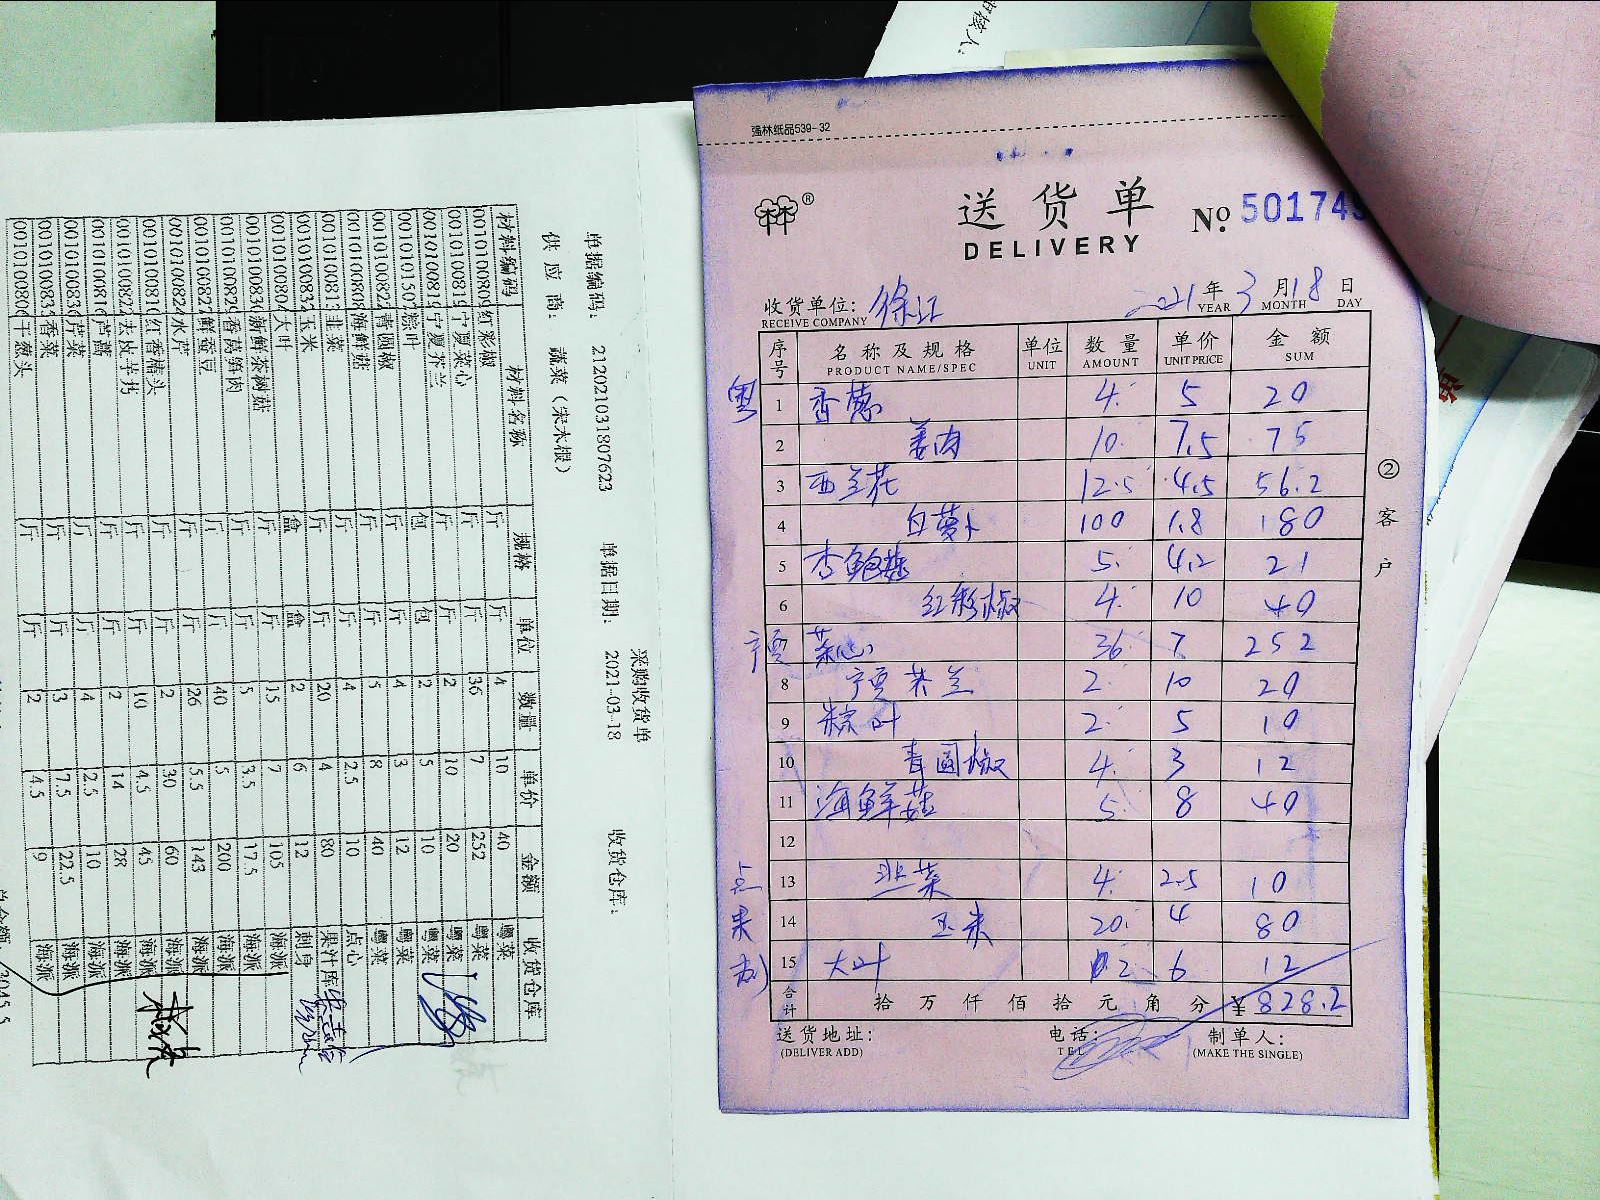 采购收货单
单据编码: 212021031807623 单据日期: 2021-03-18 收货仓库:
供 应 商: 蔬菜（宋木根）
材料编码 材料名称 规格 单位 数量 单价 金额 收货仓库
红彩椒 斤 斤 4 10 40 粤菜
宁夏菜心 斤 斤 36 7 252 粤菜
宁夏芥兰 斤 斤 2 10 20 粤菜
粽叶 包 包 2 5 10 粤菜
青圆椒 斤 斤 4 3 12 粤菜
海鲜菇 斤 斤 5 8 40 粤菜
韭菜 斤 斤 4 2.5 10 点心
玉米 斤 斤 20 4 80 果汁库
大叶 盒 盒 2 6 12 刺身
新鲜茶树菇 斤 斤 15 7 105 海派
斤 斤 5 3.5 17.5 海派
斤 斤 40 5 200 海派
鲜蚕豆 斤 斤 26 5.5 143 海派
水芹 斤 斤 2 30 60 海派
红香椿头 斤 斤 10 4.5 45 海派
去皮芋艿 斤 斤 2 14 28 海派
芦蒿 斤 斤 4 2.5 10 海派
芹菜 斤 斤 3 7.5 22.5 海派
香菜 斤 斤 2 4.5 9 海派
干葱头
强林纸品539-32
送货单
DELIVERY
No. 50174
收货单位: 徐汇 2021 年 3 月 18 日
RECEIVE COMPANY YEAR MONTH DAY
序号 名称及规格 单位 数量 单价 金额
PRODUCT NAME/SPEC UNIT AMOUNT UNIT PRICE SUM
粤 1 香葱 4 5 20
2 姜肉 10 7.5 75
3 西兰花 12.5 4.5 56.2
4 白萝卜 100 1.8 180
5 杏鲍菇 5 4.2 21
6 红彩椒 4 10 40
宁夏 菜心 36 7 252
8 宁夏芥兰 2 10 20
9 粽叶 2 5 10
10 青圆椒 4 3 12
11 海鲜菇 5 8 40
12
点 13 韭菜 4 2.5 10
果 14 玉米 20 4 80
刺 15 大叶 2 6 12
合计 拾 万 仟 佰 拾 元 角 分 ¥ 828.2
送货地址: 电话: 制单人:
(DELIVER ADD) TEL (MAKE THE SINGLE)
② 客户